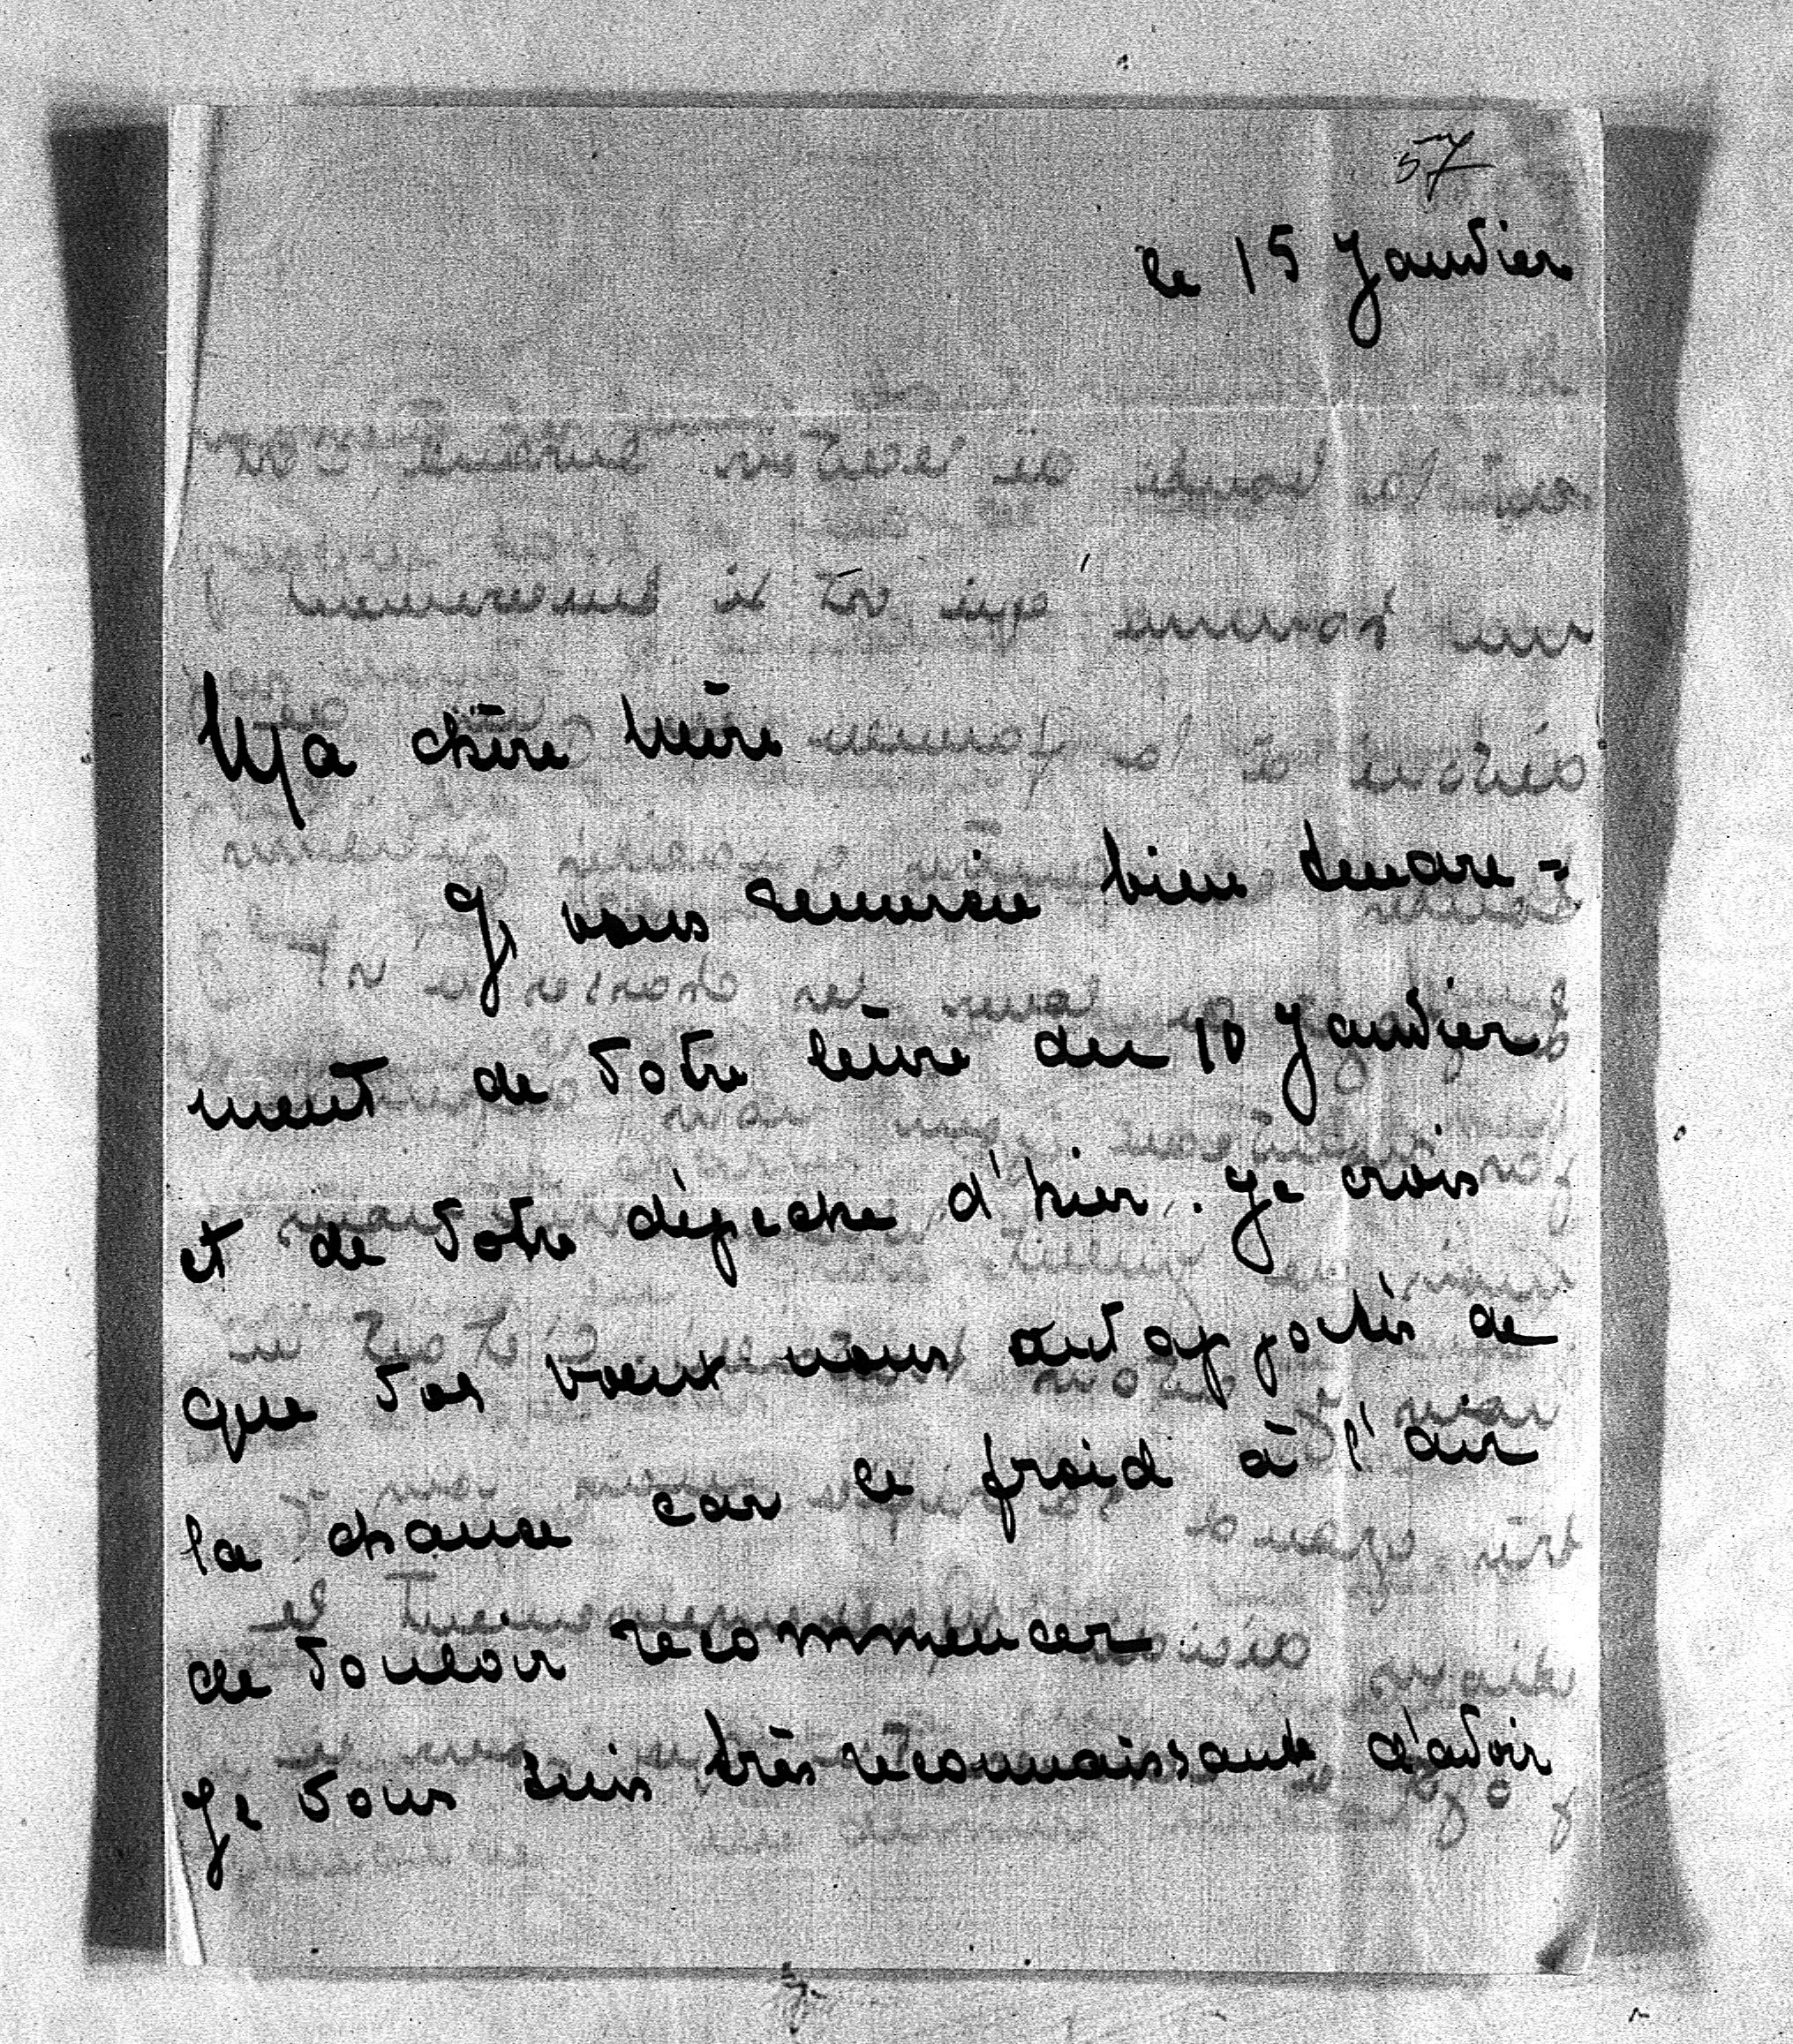 57
le 15 Janvier
Ma chère Mère
Je vous remercie bien tendre=
ment de votre lettre du 10 Janvier
et de votre dépeche d'hier. Je crois
que vos voeux nous ont apportés de
la chance car le froid à l'air
de vouloir recommencer.
Je vous suis très reconnaissante d'avoir